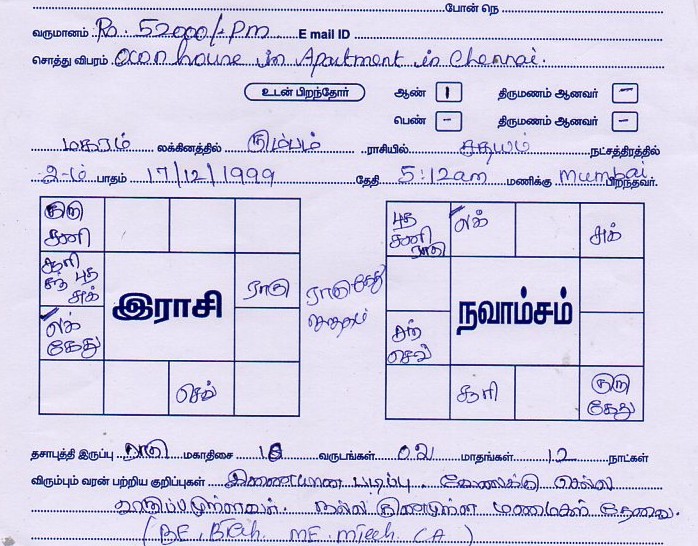 போன் நெ
வருமானம் Rs. 52000/-Pm E mail ID
சொத்து விபரம் Own house in Apartment in Chennai.
உடன் பிறந்தோர் ஆண் 1 திருமணம் ஆனவர் -
பெண் - திருமணம் ஆனவர் -
மகரம் லக்கினத்தில் கும்பம் ராசியில் சதயம் நட்சத்திரத்தில்
2-ம் பாதம் 17/12/1999 தேதி 5:12am மணிக்கு mumbai பிறந்தவர்.
குரு
சனி
சூரி
புத
சுக்
லக்
கேது
இராசி
ராகு
செவ்
ராகு கேது
புத
சனி
ராகு
லக்
சுக்
செவ்
நவாம்சம்
சூரி
குரு
கேது
தசாபுத்தி இருப்பு ராகு மகாதிசை வருடங்கள் 02 மாதங்கள் 12 நாட்கள்
விரும்பும் வரன் பற்றிய குறிப்புகள் இணையான படிப்பு. வேலைக்கு செல்ல
நல்ல குணமுள்ள மணமகள் தேவை.
(BE, BTech ME, MTech CA)